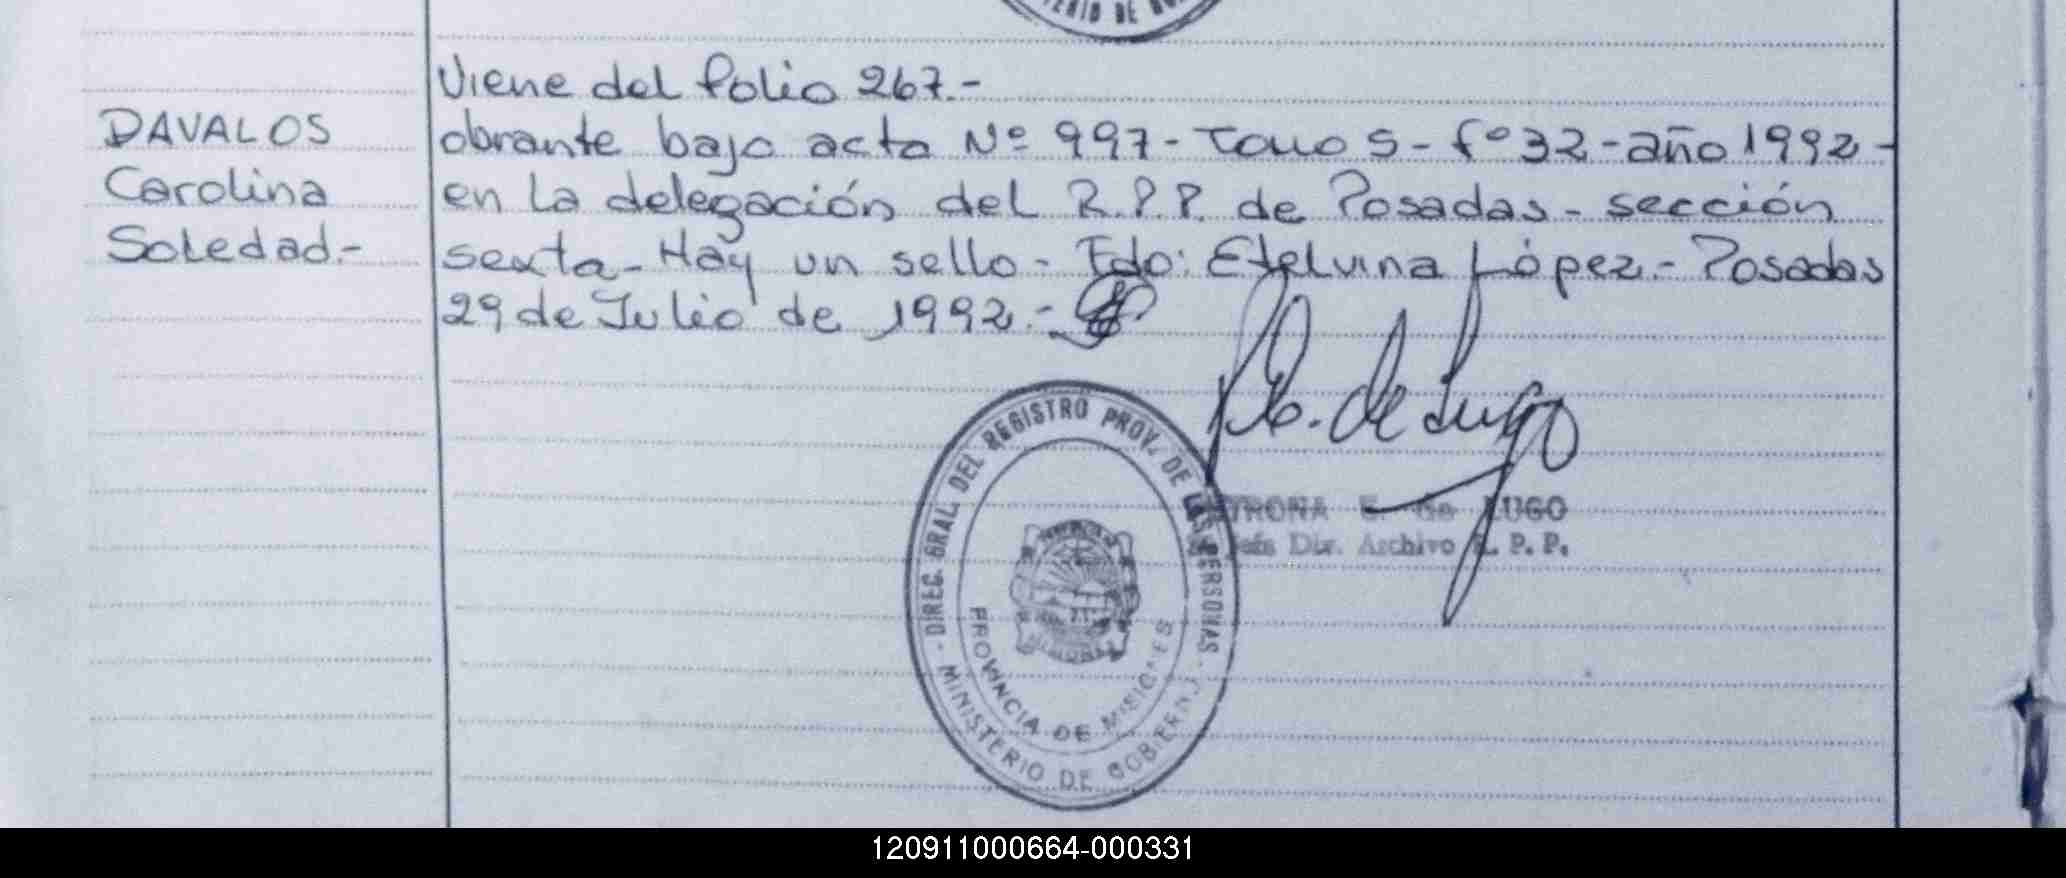 TERIO DE
Viene del folio 267.-
DAVALOS
Carolina
Soledad.-
obrante bajo acta Nº 997- Tomo 5- fº 32- año 1992-
en la delegación del R.P.P. de Posadas- sección
sexta- Hay un sello- Fdo: Etelvina López.- Posadas
29 de Julio de 1992.-
de Lugo
TRONA E. de LUGO
Jefe Dir. Archivo R. P. P.
- DIREC. GRAL. DEL REGISTRO PROV. DE LAS PERSONAS -
PROVINCIA DE MISIONES
MINISTERIO DE GOBIERNO
120911000664-000331